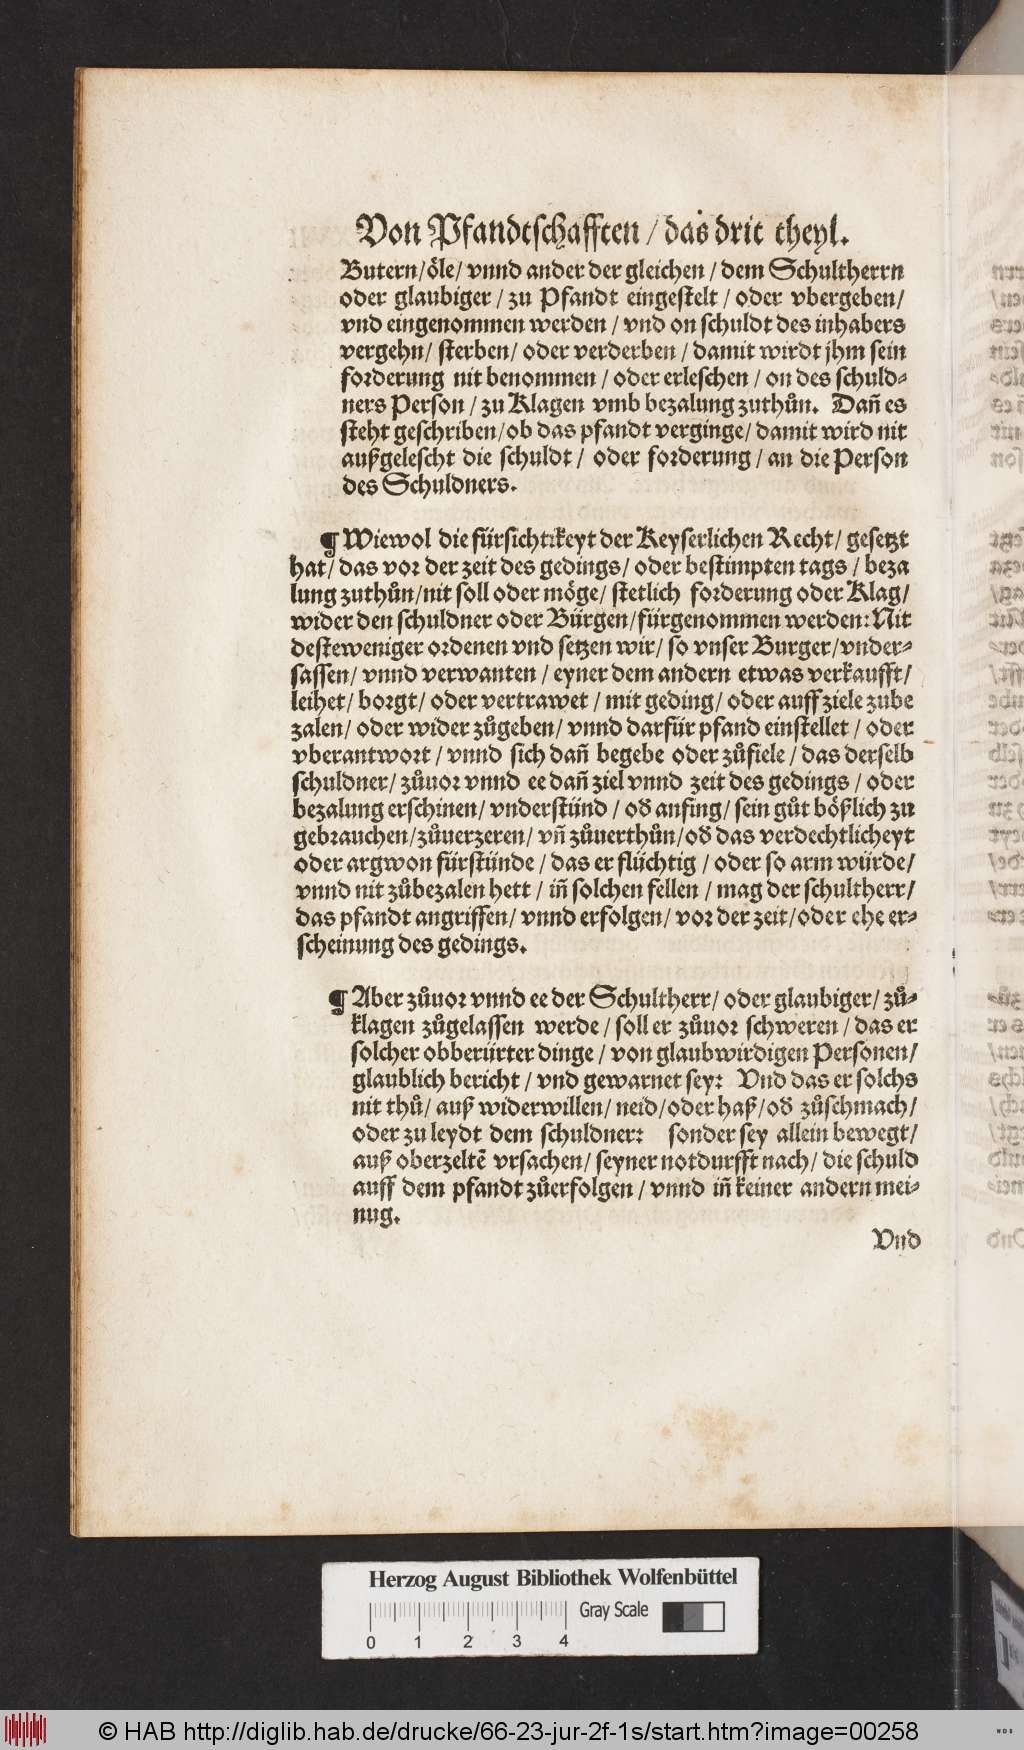 Von Pfandtschafften / das drit theyl.
Butern/ öle/ vnnd ander der gleichen / dem Schultherrn
oder glaubiger / zu Pfandt eingestelt / oder vbergeben/
vnd eingenommen werden / vnd on schuldt des inhabers
vergehn/ sterben/ oder verderben / damit wirdt jhm sein
forderung nit benommen / oder erleschen / on des schuld-
ners Person / zu Klagen vmb bezalung zuthůn. Dañ es
steht geschriben/ ob das pfandt verginge/ damit wird nit
außgelescht die schuldt / oder forderung / an die Person
des Schuldners.
¶ Wiewol die fürsichtikeyt der Keyserlichen Recht/ gesetzt
hat/ das vor der zeit des gedings/ oder bestimpten tags / beza
lung zuthůn/ nit soll oder möge/ stetlich forderung oder Klag/
wider den schuldner oder Bürgen/ fürgenommen werden: Nit
desteweniger ordenen vnd setzen wir/ so vnser Burger/ vnder-
sassen/ vnnd verwanten / eyner dem andern etwas verkaufft/
leihet/ borgt/ oder vertrawet / mit geding/ oder auff ziele zube
zalen/ oder wider zůgeben/ vnnd darfür pfand einstellet / oder
vberantwort / vnnd sich dañ begebe oder zůfiele / das derselb
schuldner/ zůuor vnnd ee dañ ziel vnnd zeit des gedings / oder
bezalung erschinen/ vnderstünd / oď anfing/ sein gůt bößlich zu
gebrauchen/ zůuerzeren/ vñ zůuerthůn/ oď das verdechtlicheyt
oder argwon fürstünde / das er flüchtig / oder so arm würde/
vnnd nit zůbezalen hett / iñ solchen fellen / mag der schultherr/
das pfandt angriffen/ vnnd erfolgen/ vor der zeit/ oder ehe er-
scheinung des gedings.
¶ Aber zůuor vnnd ee der Schultherr/ oder glaubiger/ zů-
klagen zůgelassen werde / soll er zůuor schweren / das er
solcher obberürter dinge / von glaubwirdigen Personen/
glaublich bericht / vnd gewarnet sey: Vnd das er solchs
nit thů/ auß widerwillen/ neid/ oder haß/ oď zůschmach/
oder zu leydt dem schuldner: sonder sey allein bewegt/
auß oberzeltē vrsachen/ seyner notdurfft nach/ die schuld
auff dem pfandt zůerfolgen / vnnd iñ keiner andern mei-
nug.
Vnd
Herzog August Bibliothek Wolfenbüttel
Gray Scale
0 1 2 3 4
© HAB http://diglib.hab.de/drucke/66-23-jur-2f-1s/start.htm?image=00258